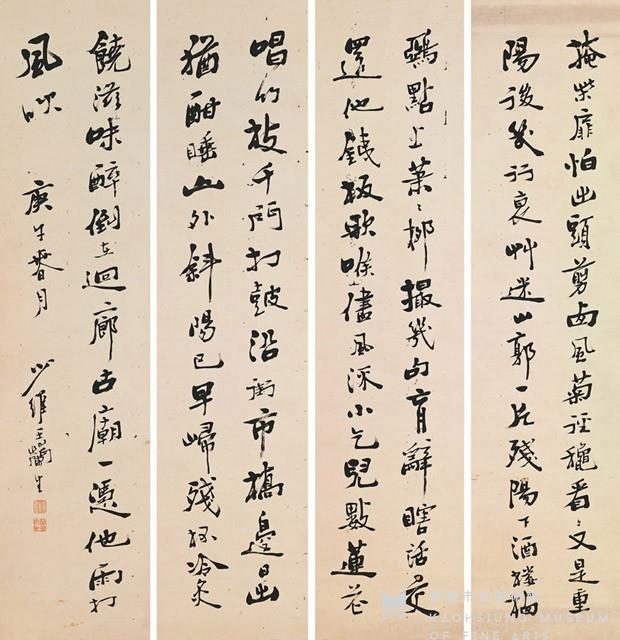 掩柴扉怕出頭剪西風菊徑穐看〻又是重
陽後幾行衰艸迷山郭一片殘陽下酒樓栖
鴉點上葉〻柳撮幾句盲辭瞎話交
還他鐵板歌喉儘風流小乞兒數蓮花
唱竹枝千門打鼓沿街市橋邊日出
猶酣睡山外斜陽已早歸殘杯冷炙
饒滋味醉倒在迴廊古廟一憑他雨打
風吹 庚午春月 少維王
高雄市立美術館
KAOHSIUNG MUSEUM
OF FINE ARTS